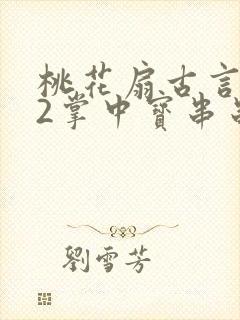 桃花扇古言
2掌中寳串
劉雪芳